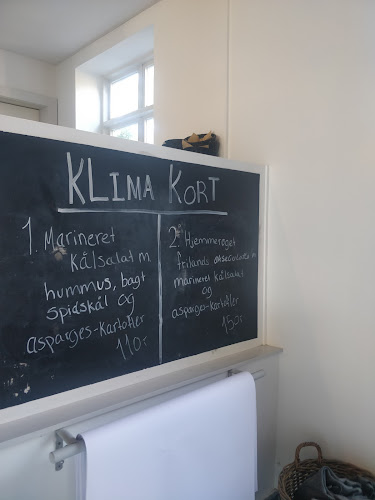 KLIMA KORT
1. Marineret
kålsalat m
hummus, bagt
spidskål og
asparges-kartofler
110,-
2. Hjemmerøget
frilands m
marineret kålsalat
og
asparges-kartofler
150,-